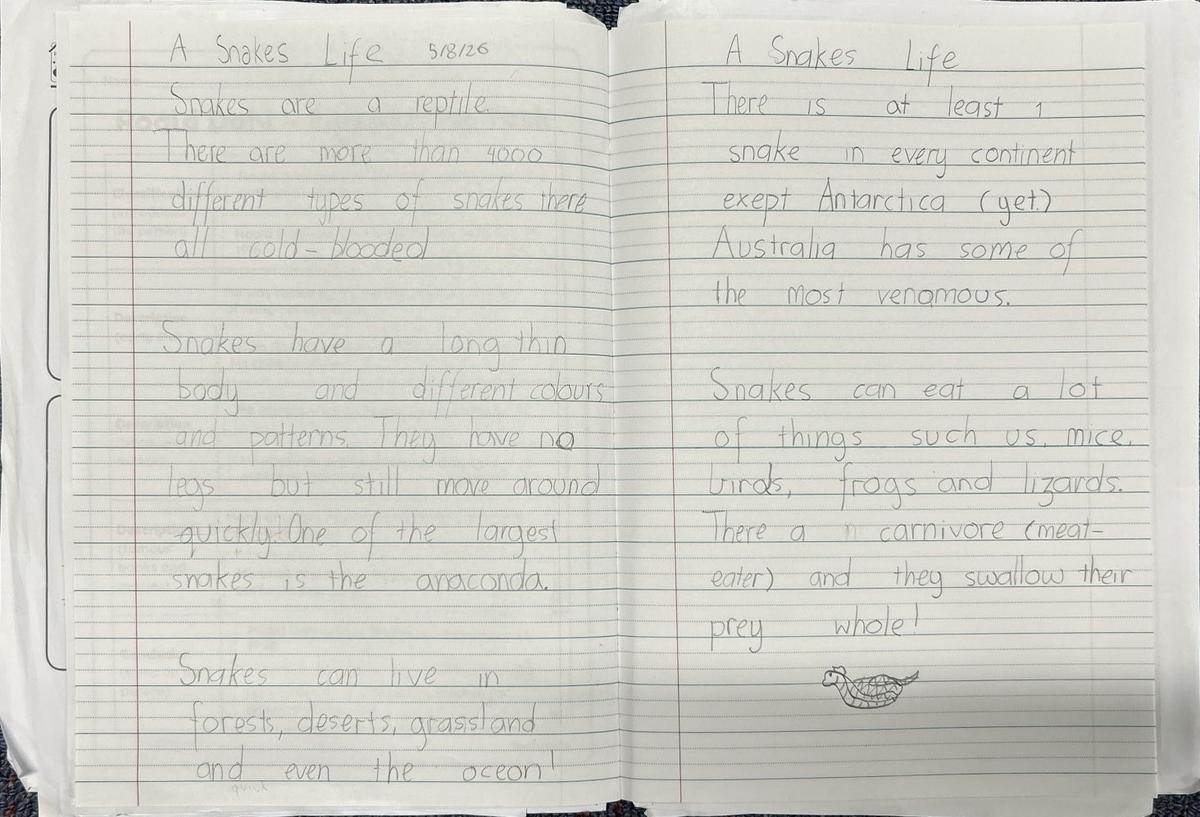 A Snakes Life 5/8/26
Snakes are a reptile.
There are more than 4000
different types of snakes there
all cold-blooded
Snakes have a long thin
body and different colours
and patterns. They have no
legs but still move around
quickly. One of the largest
snakes is the anaconda.
Snakes can live in
forests, deserts, grassland
and even the ocean!
A Snakes Life
There is at least 1
snake in every continent
exept Antarctica (yet.)
Australia has some of
the most venamous.
Snakes can eat a lot
of things such us, mice,
birds, frogs and lizards.
There a carnivore (meat-
eater) and they swallow their
prey whole!